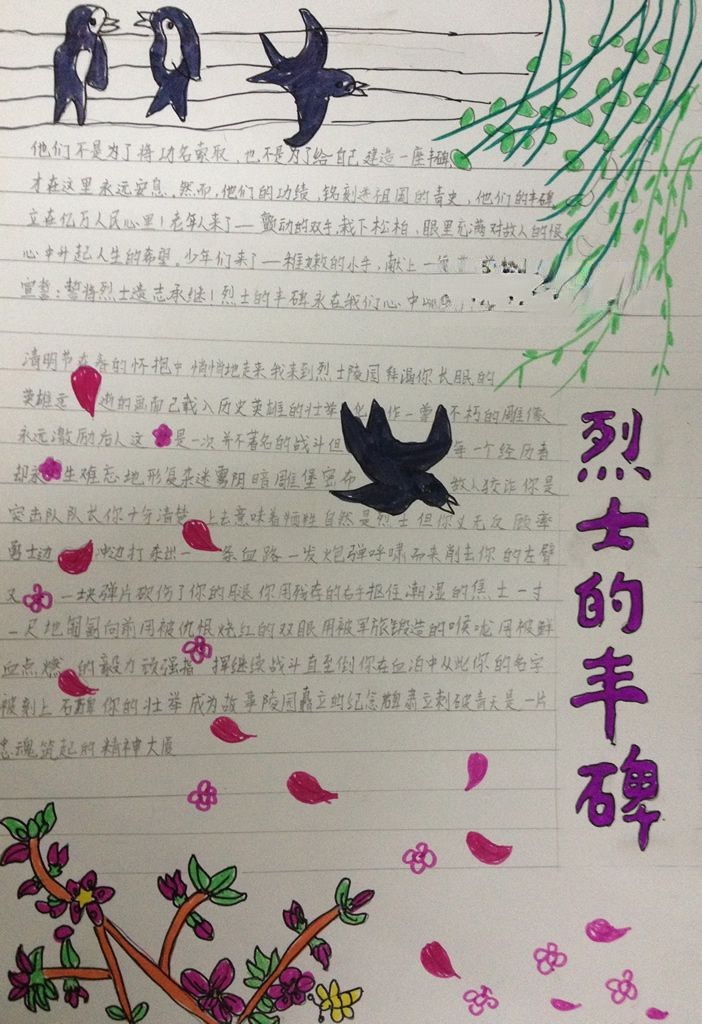 他们不是为了将功名索取，也不是为了给自己建造一座丰碑
才在这里永远安息。然而，他们的功绩，铭刻进祖国的青史，他们的丰碑，
立在亿万人民心里！老年人来了——颤动的双手，栽下松柏，眼里充满对故人的恨
心中升起人生的希望。少年们来了——稚嫩的小手，献上一
宣誓：誓将烈士遗志承继！烈士的丰碑永在我们心中
清明节在春的怀抱中悄悄地走来我来到烈士陵园拜谒你长眠的
英雄远逝的画面已载入历史英雄的壮举化作一尊不朽的雕像
永远激励后人这是一次并不著名的战斗但每一个经历者
却永生难忘地形复杂迷雾阴暗雕堡密布敌人狡诈你是
突击队队长你十分清楚上去意味着牺牲自然是烈士但你义无反顾率
勇士边冲边打杀出一条血路一发炮弹呼啸而来削去你的左臂
又一块弹片砍伤了你的腿你用残存的右手抠住潮湿的焦土一寸
一尺地匍匐向前用被仇恨烧红的双眼用被军旅锻造的喉咙用被鲜
血点燃的毅力顽强指挥继续战斗直至倒你在血泊中从此你的名字
被刻上石碑你的壮举成为故事陵园矗立的纪念碑肃立刺破青天是一片
忠魂筑起的精神大厦
烈士的丰碑